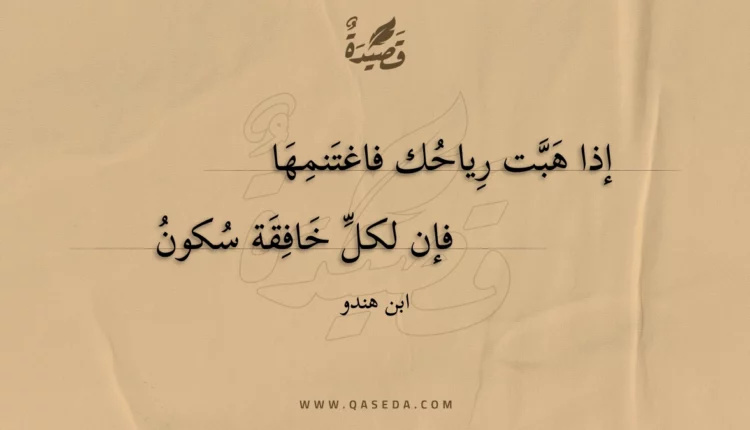 قَصِيدَةٌ
إذا هَبَّت رِياحُك فاغتَنمِهَا
فإن لكلِّ خَافِقَة سُكونُ
ابن هندو
WWW.QASEDA.COM